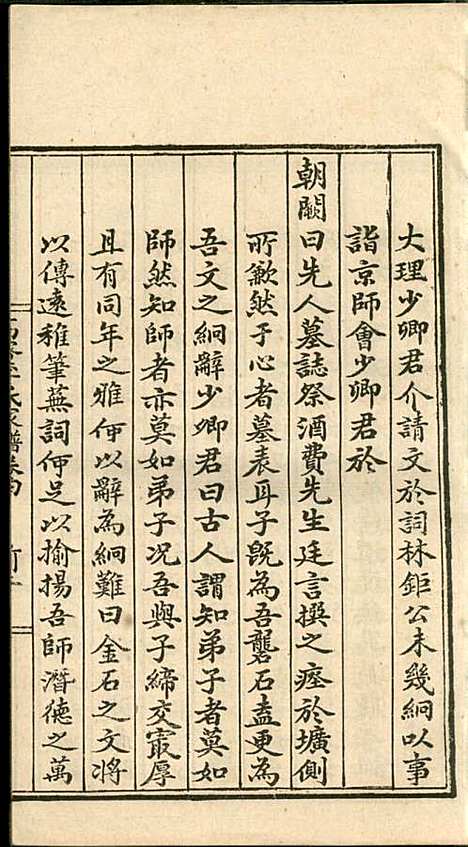 大理少卿君介請文於詞林鉅公未幾絅以事
詣京師會少卿君於
朝闕曰先人墓誌祭酒費先生廷言撰之瘞於壙側
所歉然于心者墓表耳子旣為吾礱石盍更為
吾文之絅辭少卿君曰古人謂知弟子者莫如
師然知師者亦莫如弟子况吾與子締交㝡厚
且有同年之雅何以辭為絅難曰金石之文將
以傳遠稚筆蕪詞何足以揄揚吾師潛德之萬